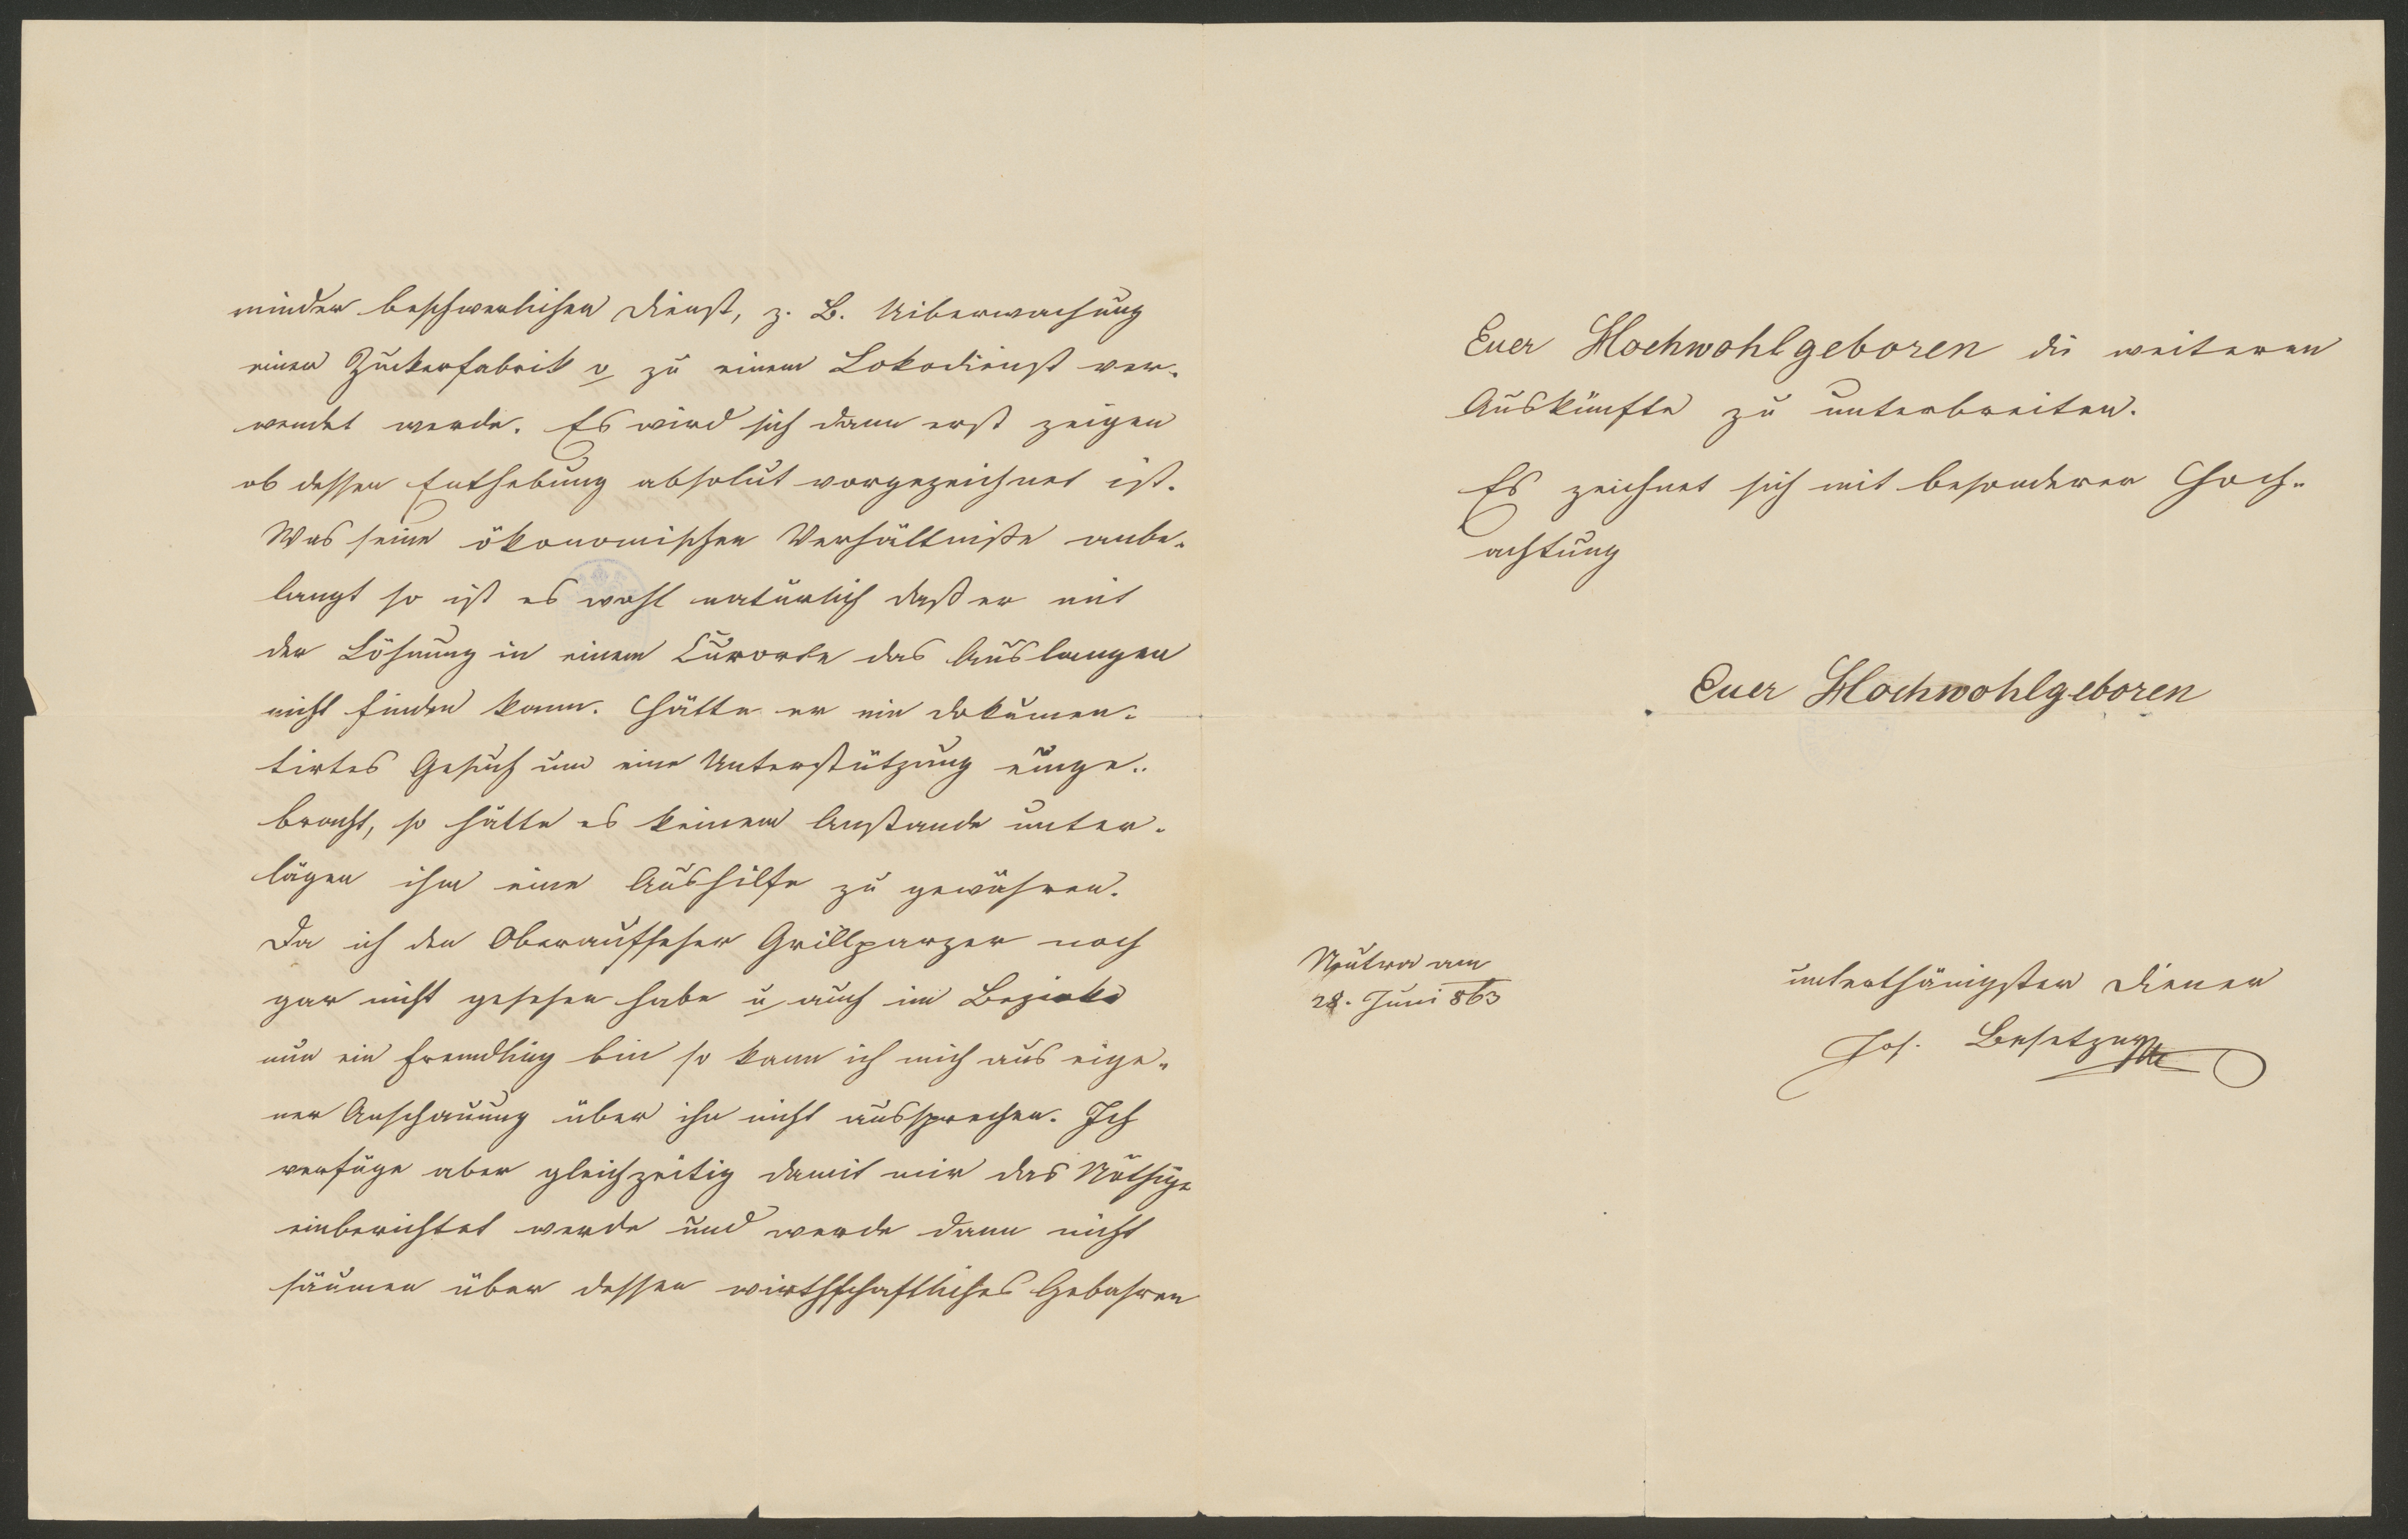 minder beschwerlichen Dienst, z. B. Uiberwachung
einer Zuckerfabrik o zu einem Lokodienst ver-
wendet werde. Es wird sich dann erst zeigen
ob dessen Enthebung absolut vorgezeichnet ist.
Was seine ökonomischen Verhältniße anbe-
langt so ist es wohl natürlich daß er mit
der Löhnung in einem Curorte das Auslangen
nicht finden kann. Hätte er ein dokumen-
tirtes Gesuch um eine Unterstützung einge-
bracht, so hätte es keinem Anstande unter-
lägen ihm eine Aushilfe zu gewähren.
Da ich den Oberaufseher Grillparzer noch
gar nicht gesehen habe u auch im Bezirke
nun ein Fremdling bin so kann ich mich aus eige-
ner Anschauung über ihn nicht aussprechen. Ich
verfüge aber gleichzeitig damit mir das Nöthige
einberichtet werde und werde dann nicht
säumen über dessen wirthschaftliches Gebahren
Euer Hochwohlgeboren die weiteren
Auskünfte zu unterbreiten.
Es zeichnet sich mit besonderer Hoch-
achtung
Euer Hochwohlgeboren
Neutra am
28. Juni 863
unterthänigster Diener
Jos. Besetzny